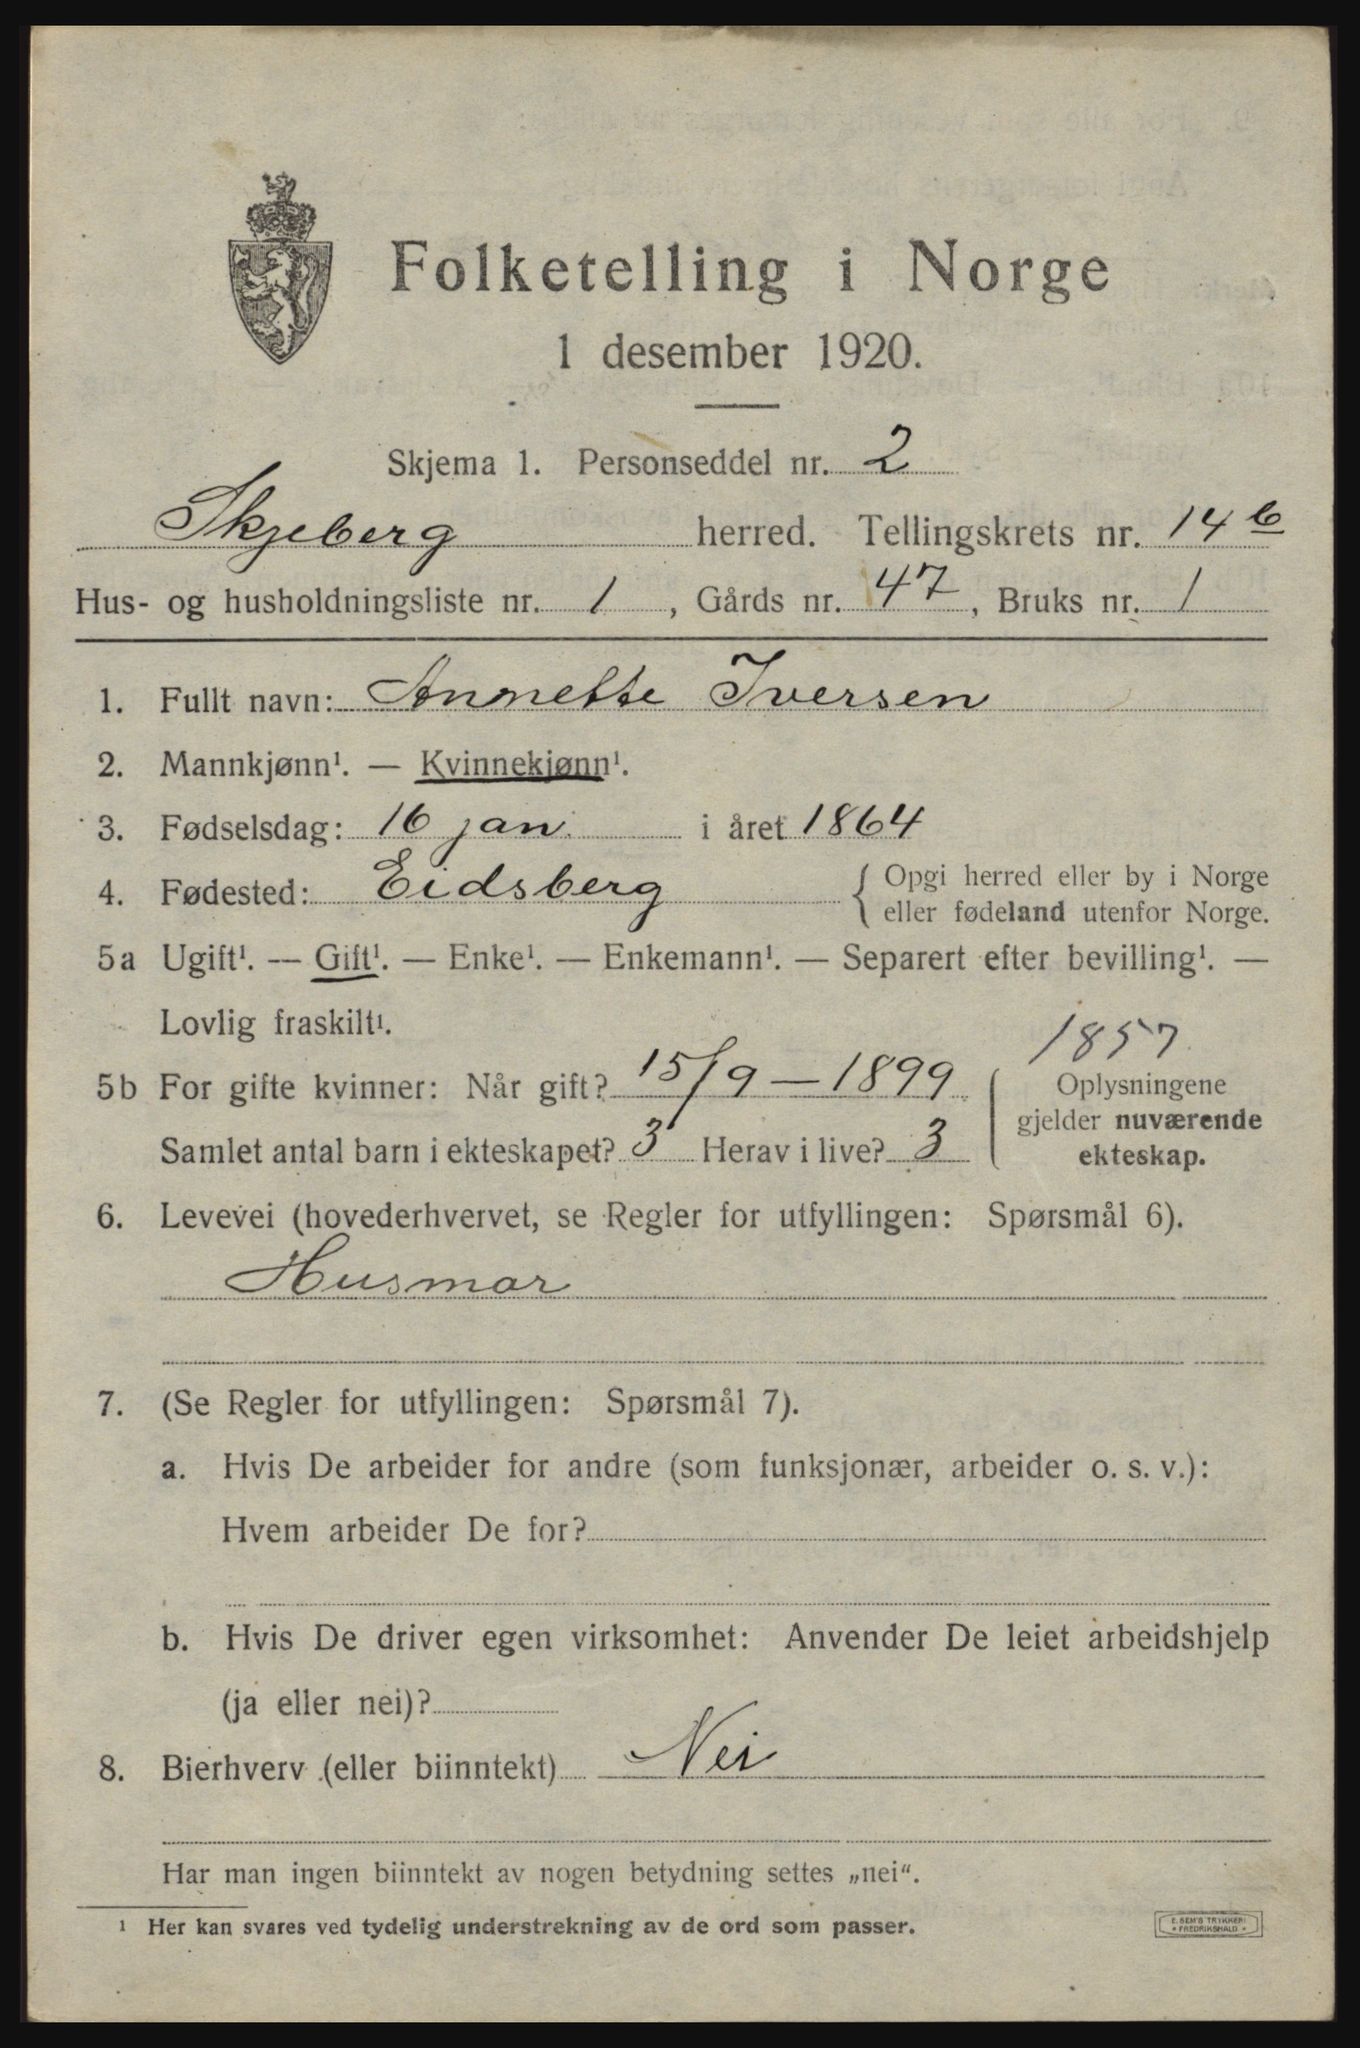 Folketelling i Norge
1 desember 1920.
Skjema 1. Personseddel nr. 2
Skjeberg herred. Tellingskrets nr. 14 b
Hus- og husholdningsliste nr. 1, Gårds nr. 47, Bruks nr. 1
1. Fullt navn: Annette Iversen
2. Mannkjønn¹. — Kvinnekjønn¹.
3. Fødselsdag: 16 jan. i året 1864
4. Fødested: Eidsberg { Opgi herred eller by i Norge
eller fødeland utenfor Norge.
5a Ugift¹. — Gift¹. — Enke¹. — Enkemann¹. — Separert efter bevilling¹. —
Lovlig fraskilt¹.
1857
5b For gifte kvinner: Når gift? 15/9 — 1899
Samlet antal barn i ekteskapet? 3 Herav i live? 3
Oplysningene
gjelder nuværende
ekteskap.
6. Levevei (hovederhvervet, se Regler for utfyllingen: Spørsmål 6).
Husmor
7. (Se Regler for utfyllingen: Spørsmål 7).
a. Hvis De arbeider for andre (som funksjonær, arbeider o. s. v.):
Hvem arbeider De for?
b. Hvis De driver egen virksomhet: Anvender De leiet arbeidshjelp
(ja eller nei)?
8. Bierhverv (eller biinntekt) Nei
Har man ingen biinntekt av nogen betydning settes „nei“.
¹ Her kan svares ved tydelig understrekning av de ord som passer.
E. SEM'S TRYKKERI
* FREDRIKSHALD *